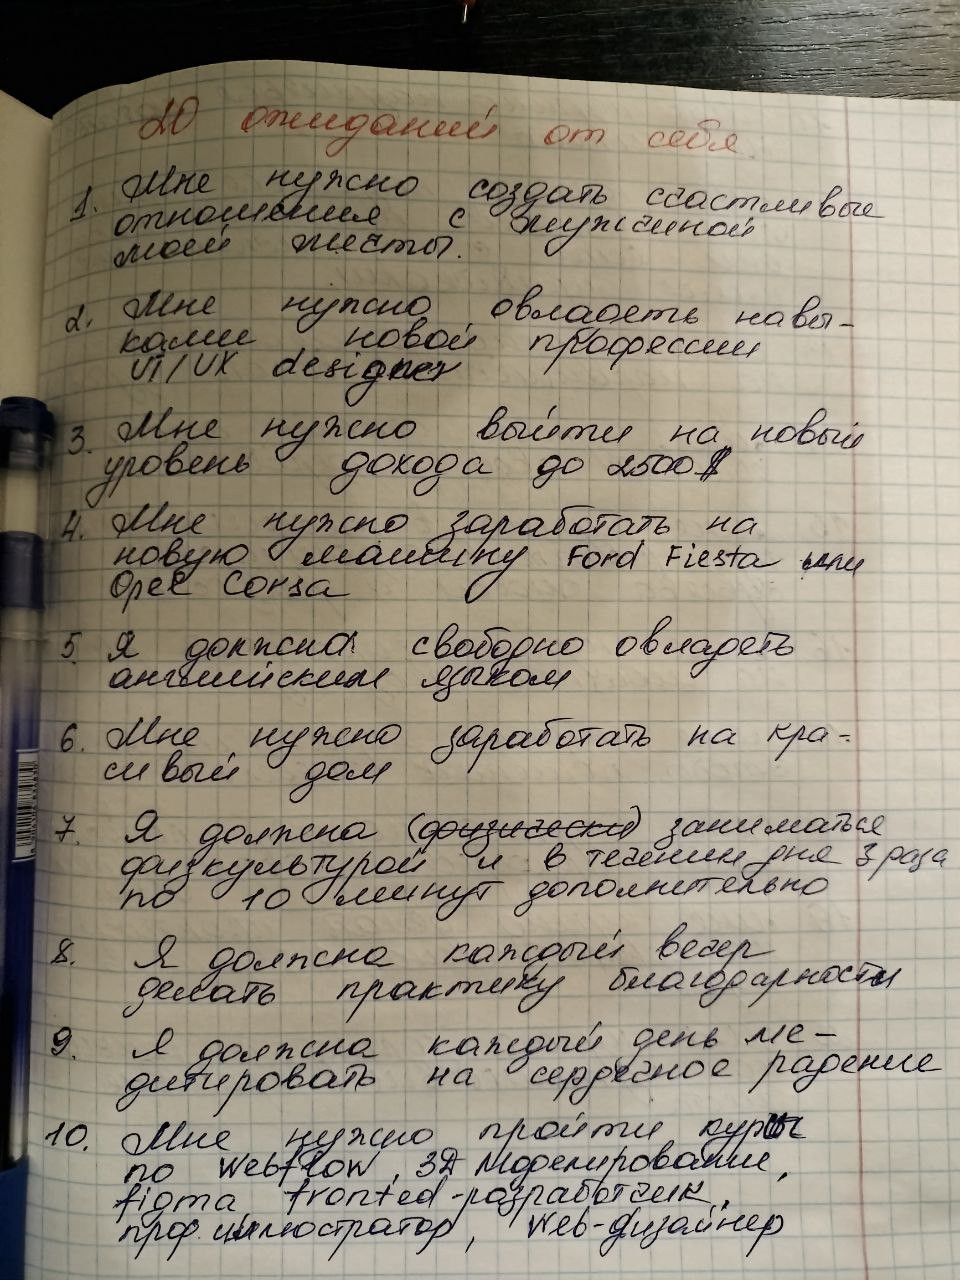 20 ожиданий от себя
1. Мне нужно создать счастливые
отношения с мужчиной
моей мечты.
2. Мне нужно овладеть навы-
ками новой профессии
UI/UX designer
3. Мне нужно выйти на новый
уровень дохода до 2500$
4. Мне нужно заработать на
новую машину Ford Fiesta или
Opel Corsa
5. Я должна свободно овладеть
английским языком
6. Мне нужно заработать на кра-
сивый дом
7. Я должна (физически) заниматься
физкультурой и в течении дня 3 раза
по 10 минут дополнительно
8. Я должна каждый вечер
делать практику благодарности
9. Я должна каждый день ме-
дитировать на сердечное радение
10. Мне нужно пройти курсы
по Webflow, 3D Моделирование,
figma fronted-разработчик,
проф. иллюстратор, Web-дизайнер